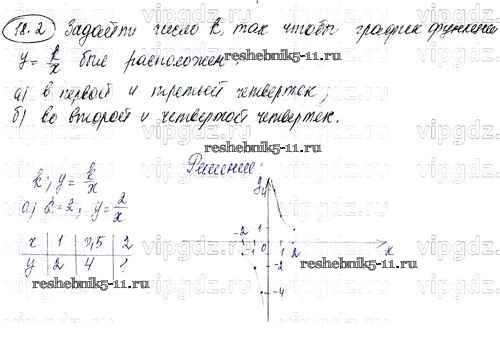 18.2 Задайти число k так чтобы график функции
y = k/x был расположен
а) в первой и третьей четвертех;
б) во второй и четвертой четвертех.
reshebnik5-11.ru
Решение:
k; y = k/x
а) k = 2; y = 2/x
x 1 0,5 2
y 2 4 1
reshebnik5-11.ru
y 4
1
-2 -1 0 1 2 x
-2
-4
reshebnik5-11.ru
vipgdz.ru